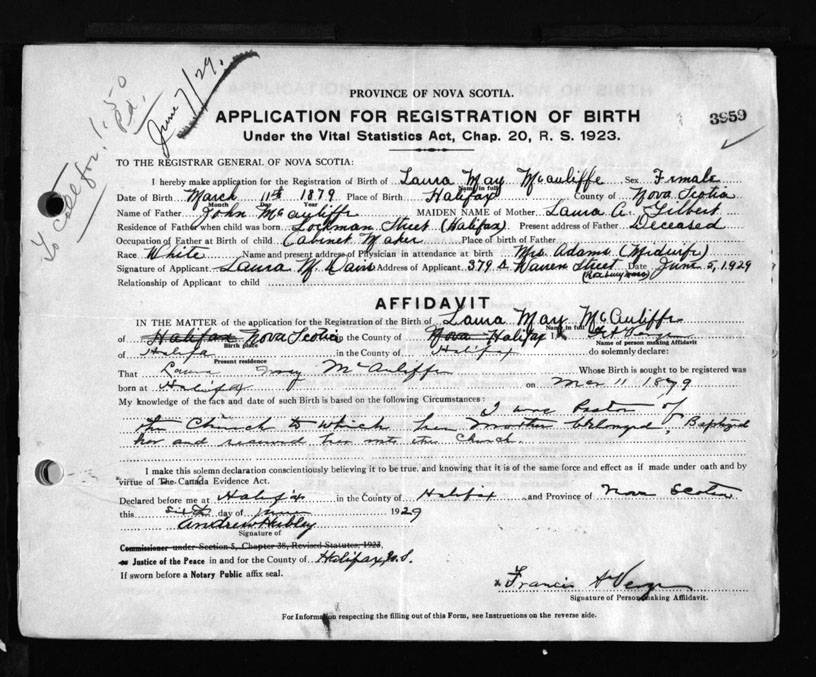 To call for. 1.50 Pd.
June 7/29.
PROVINCE OF NOVA SCOTIA.
APPLICATION FOR REGISTRATION OF BIRTH
3959
Under the Vital Statistics Act, Chap. 20, R. S. 1923.
TO THE REGISTRAR GENERAL OF NOVA SCOTIA:
I hereby make application for the Registration of Birth of Laura May McAuliffe Sex Female
Name in full
Date of Birth March 11th 1879 Place of Birth Halifax County of Nova Scotia
Month Day Year
Name of Father John McAuliffe MAIDEN NAME of Mother Laura A. Gilbert
Residence of Father when child was born Lockman Street (Halifax). Present address of Father Deceased
Occupation of Father at Birth of child Cabinet Maker Place of birth of Father
Race White Name and present address of Physician in attendance at birth Mrs. Adams (Midwife)
Signature of Applicant Laura M. Address of Applicant 379 Warren Street Date June 5, 1929
(Roxbury Mass)
Relationship of Applicant to child
AFFIDAVIT
IN THE MATTER of the application for the Registration of the Birth of Laura May McAuliffe
Name in full
of Halifax Nova Scotia in the County of Nova Halifax I
Birth place Name of person making Affidavit
of Halifax in the County of Halifax do solemnly declare:
Present residence
That Laura May McAuliffe Whose Birth is sought to be registered was
born at Halifax on Mar 11 1879
My knowledge of the facts and date of such Birth is based on the following Circumstances: I was Pastor of
the Church to which her mother belonged, Baptized
her and received her into the Church.
I make this solemn declaration conscientiously believing it to be true, and knowing that it is of the same force and effect as if made under oath and by
virtue of The Canada Evidence Act.
Declared before me at Halifax in the County of Halifax and Province of Nova Scotia
this Sixth day of June 1929
Andrew Hubley
Signature of
Commissioner under Section 5, Chapter 38, Revised Statutes, 1923,
or Justice of the Peace in and for the County of Halifax, N.S.
If sworn before a Notary Public affix seal.
x Francis H
Signature of Person making Affidavit.
For Information respecting the filling out of this Form, see Instructions on the reverse side.